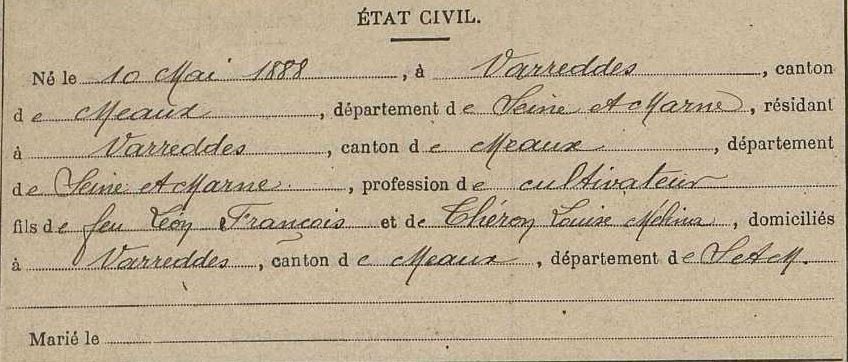 ÉTAT CIVIL.
Né le 10 Mai 1888, à Varreddes, canton
de Meaux, département de Seine et Marne, résidant
à Varreddes, canton de Meaux, département
de Seine et Marne, profession de cultivateur
fils de feu Léon François et de Théron Louise Mélina, domiciliés
à Varreddes, canton de Meaux, département de S et M.
Marié le